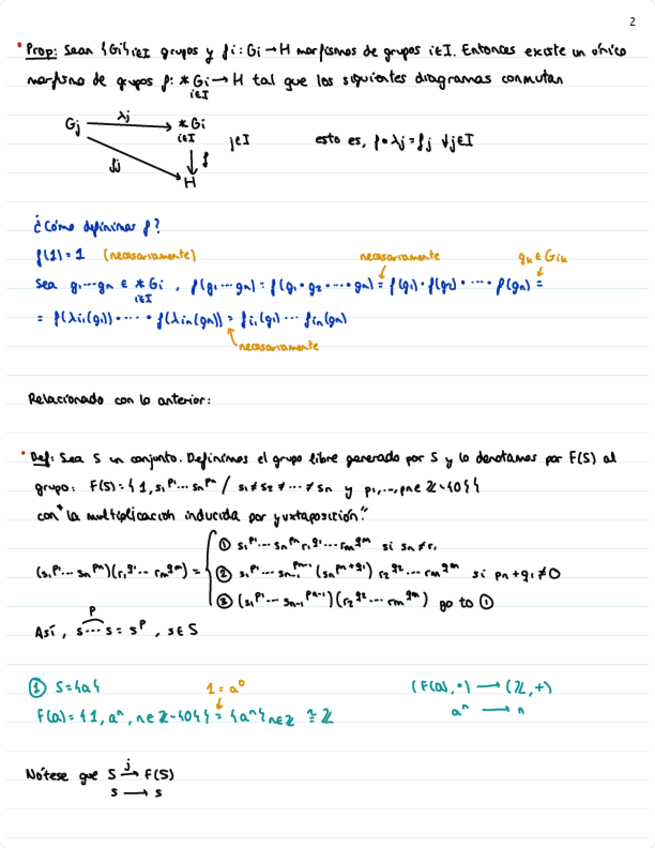 2
• Prop: Sean {Gi}i∈I grupos y fi: Gi → H morfismos de grupos i∈I. Entonces existe un único
morfismo de grupos f: * Gi → H tal que los siguientes diagramas conmutan
i∈I
Gj λj * Gi
i∈I j∈I esto es, f∘λj = fj ∀j∈I
fj f
H
¿Cómo definimos f?
f(1)=1 (necesariamente) necesariamente gk ∈ Gik
Sea g1⋯gn ∈ * Gi, f(g1⋯gn) = f(g1·g2·⋯·gn) = f(g1)·f(g2)·⋯·f(gn) =
i∈I
= f(λi1(g1))·⋯·f(λin(gn)) = fi1(g1)⋯fin(gn)
necesariamente
Relacionado con lo anterior:
• Def: Sea S un conjunto. Definimos el grupo libre generado por S y lo denotamos por F(S) al
grupo: F(S) = {1, s1^p1⋯sn^pn / s1≠s2≠⋯≠sn y p1,⋯,pn∈ℤ-{0}}
con "la multiplicación inducida por yuxtaposición."
① s1^p1⋯sn^pn r1^q1⋯rm^qm si sn≠r1
(s1^p1⋯sn^pn)(r1^q1⋯rm^qm) = { ② s1^p1⋯sn-1^pn-1 (sn^pn+q1) r2^q2⋯rm^qm si pn+q1≠0
③ (s1^p1⋯sn-1^pn-1)(r2^q2⋯rm^qm) go to ①
p
Así, s⋯s = s^p, s∈S
① S={a} 1=a^0 (F(a),·) → (ℤ,+)
F(a) = {1, a^n, n∈ℤ-{0}} = {a^n}n∈ℤ ≅ ℤ a^n → n
Nótese que S j→ F(S)
s → s